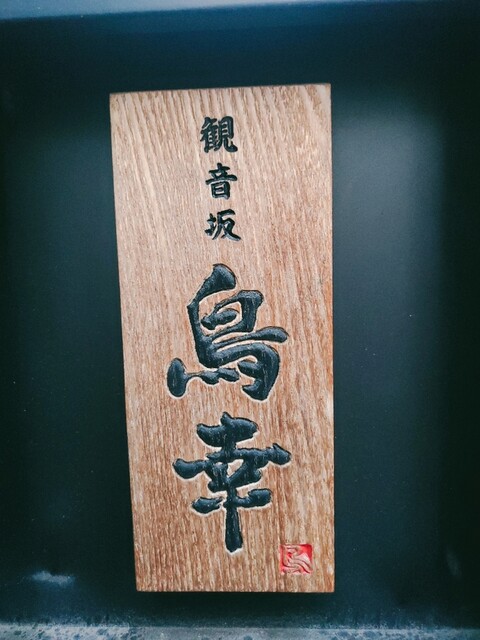 観音坂
鳥幸